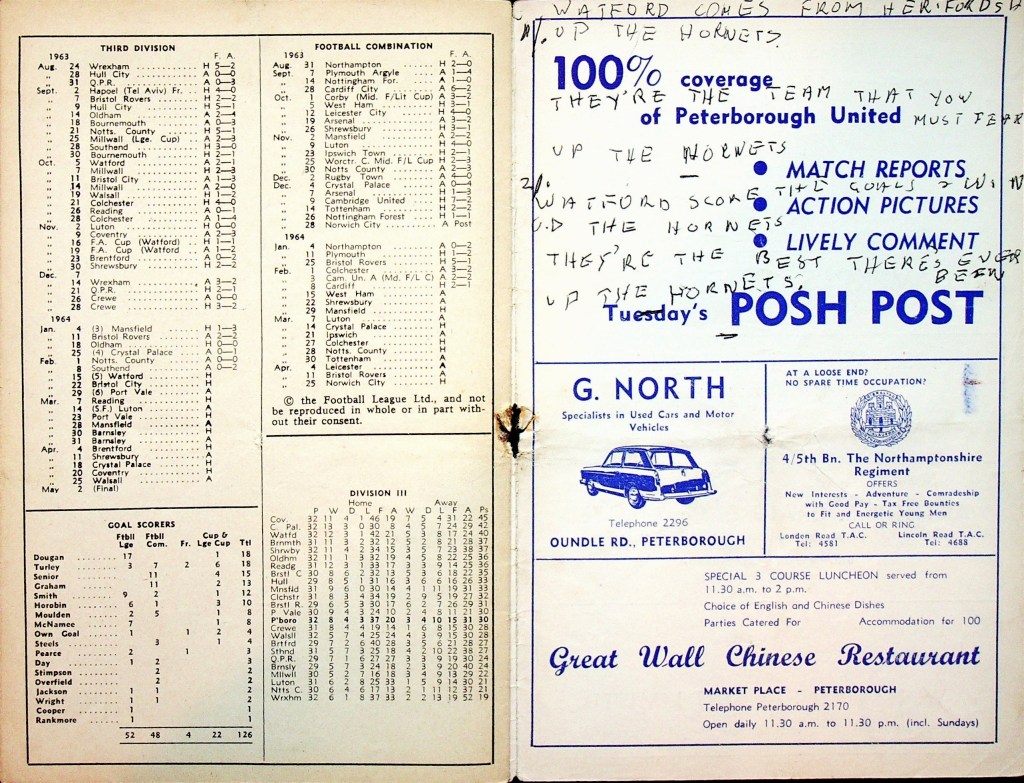 THIRD DIVISION
1963 F. A.
Aug. 24 Wrexham H 5—2
„ 28 Hull City A 0—0
„ 31 Q.P.R. A 0—3
Sept. 2 Hapoel (Tel Aviv) Fr. H 4—0
„ 7 Bristol Rovers H 2—2
„ 9 Hull City H 5—1
„ 14 Oldham A 2—4
„ 18 Bournemouth A 0—3
„ 21 Notts. County H 5—1
„ 25 Millwall (Lge. Cup) A 2—3
„ 28 Southend H 3—0
„ 30 Bournemouth H 2—1
Oct. 5 Watford A 2—1
„ 7 Millwall H 2—3
„ 11 Bristol City A 1—3
„ 14 Millwall A 2—0
„ 19 Walsall H 1—2
„ 21 Colchester H 4—0
„ 26 Reading A 0—1
„ 28 Colchester A 1—4
Nov. 2 Luton H 0—0
„ 9 Coventry A 2—3
„ 16 F.A. Cup (Watford) H 1—1
„ 19 F.A. Cup (Watford A 1—2
„ 23 Brentford A 0—2
„ 30 Shrewsbury H 2—2
Dec. 7
„ 14 Wrexham A 3—2
„ 21 Q.P.R. H 2—1
„ 26 Crewe A 0—1
„ 28 Crewe H 3—2
1964
Jan. 4 (3) Mansfield H 1—3
„ 11 Bristol Rovers A 2—2
„ 18 Oldham H 0—0
„ 25 (4) Crystal Palace A 0—1
Feb. 1 Notts. County A 0—0
„ 8 Southend A 0—2
„ 15 (5) Watford H
„ 22 Bristol City H
„ 29 (6) Port Vale A
Mar. 7 Reading H
„ 14 (S.F.) Luton A
„ 23 Port Vale H
„ 28 Mansfield A
„ 30 Barnsley H
„ 31 Barnsley A
Apr. 4 Brentford H
„ 11 Shrewsbury A
„ 18 Crystal Palace H
„ 20 Coventry H
„ 25 Walsall A
May 2 (Final)
GOAL SCORERS
Ftbll Lge Ftbll Com. Fr. Cup & Lge Cup Ttl
Dougan 17 1 18
Turley 3 7 2 6 18
Senior 11 4 15
Graham 11 2 13
Smith 9 2 1 12
Horobin 6 1 3 10
Moulden 2 5 1 8
McNamee 7 1 8
Own Goal 1 1 2 4
Steels 3 1 4
Pearce 2 1 3
Day 1 2 3
Stimpson 2 2
Overfield 2 2
Jackson 1 1 2
Wright 1 1 2
Cooper 1 1
Rankmore 1 1
52 48 4 22 126
FOOTBALL COMBINATION
1963 F. A.
Aug. 31 Northampton H 2—0
Sept. 7 Plymouth Argyle A 1—4
„ 14 Nottingham For. A 1—2
„ 28 Cardiff City A 6—2
Oct. 1 Corby (Mid. F/Lit Cup) A 3—2
„ 5 West Ham H 3—1
„ 12 Leicester City H 4—0
„ 19 Arsenal A 2—3
„ 26 Shrewsbury H 3—1
Nov. 2 Mansfield A 2—2
„ 9 Luton H 4—0
„ 23 Ipswich Town H 2—1
„ 25 Worctr. C. Mid. F/L Cup H 2—3
„ 30 Notts. County A 2—3
Dec. 2 Rugby Town A 4—0
Dec. 4 Crystal Palace A 0—4
„ 7 Arsenal H 1—3
„ 9 Cambridge United H 7—2
„ 14 Tottenham H 2—2
„ 26 Nottingham Forest H 1—1
„ 28 Norwich City A Post
1964
Jan. 4 Northampton A 0—2
„ 11 Plymouth H 1—2
„ 25 Bristol Rovers H 5—1
Feb. 1 Colchester A 3—3
„ 3 Cam. Un. A (Md. F/L C) A 2—2
„ 8 Cardiff H 2—1
„ 15 West Ham A
„ 22 Shrewsbury A
„ 29 Mansfield H
Mar. 7 Luton A
„ 14 Crystal Palace H
„ 21 Ipswich A
„ 27 Colchester H
„ 28 Notts. County H
„ 30 Tottenham A
Apr. 4 Leicester A
„ 11 Bristol Rovers A
„ 25 Norwich City H
© the Football League Ltd., and not
be reproduced in whole or in part with-
out their consent.
DIVISION III
Home Away
P W D L F A W D L F A Ps
Cov. 32 11 4 1 46 19 7 5 4 31 22 45
C. Pal. 32 13 3 0 30 8 4 5 7 24 29 42
Watfd 32 12 3 1 42 21 5 3 8 17 24 40
Brnmth 31 11 3 2 32 12 5 2 8 21 22 37
Shrwby 32 11 4 2 34 15 3 5 7 23 38 37
Oldhm 32 11 2 3 32 19 4 5 8 22 25 36
Readg 31 12 3 1 33 17 3 3 9 14 25 36
Brstl C 30 8 6 2 32 13 5 3 6 18 22 35
Hull 29 8 5 1 31 16 3 6 6 16 26 33
Mnsfld 31 9 6 0 30 14 4 1 11 19 31 33
Clchstr 31 8 3 4 34 19 2 9 5 19 27 32
Brstl R. 29 6 5 3 30 17 6 2 7 26 29 31
P Vale 30 9 4 3 24 10 2 4 8 11 21 30
P'boro 32 8 4 3 37 20 3 4 10 15 31 30
Crewe 31 8 4 4 19 14 1 6 8 15 30 28
Walsll 32 5 7 4 25 24 4 3 9 15 30 28
Brtfrd 29 7 2 6 40 28 3 5 6 21 28 27
Sthnd 31 5 7 3 25 18 4 1 11 22 38 27
Q.P.R. 29 7 1 6 27 27 3 3 9 19 30 24
Brnsly 29 5 7 3 24 18 2 3 9 20 40 24
Mllwll 30 5 2 7 16 18 3 4 9 13 29 22
Luton 31 6 2 8 25 33 1 5 9 14 30 21
Ntts C. 30 6 4 6 17 13 2 1 11 12 37 21
Wrxhm 32 6 1 8 37 33 2 2 13 19 52 19
WATFORD COMES FROM HERTFORDSH
UP THE HORNETS.
100% coverage
THEY'RE THE TEAM THAT YOU MUST FEAR
of Peterborough United
UP THE HORNETS
MATCH REPORTS
2/. WATFORD SCORE THE GOALS & WIN
ACTION PICTURES
UP THE HORNETS
LIVELY COMMENT
THEY'RE THE BEST THERE'S EVER BEEN
UP THE HORNETS.
Tuesday's POSH POST
G. NORTH
Specialists in Used Cars and Motor
Vehicles
Telephone 2296
OUNDLE RD., PETERBOROUGH
AT A LOOSE END?
NO SPARE TIME OCCUPATION?
4/5th Bn. The Northamptonshire
Regiment
OFFERS
New Interests - Adventure - Comradeship
with Good Pay - Tax Free Bounties
to Fit and Energetic Young Men
CALL OR RING
London Road T.A.C. Lincoln Road T.A.C.
Tel: 4581 Tel: 4688
SPECIAL 3 COURSE LUNCHEON served from
11.30 a.m. to 2 p.m.
Choice of English and Chinese Dishes
Parties Catered For Accommodation for 100
Great Wall Chinese Restaurant
MARKET PLACE - PETERBOROUGH
Telephone Peterborough 2170
Open daily 11.30 a.m. to 11.30 p.m. (incl. Sundays)